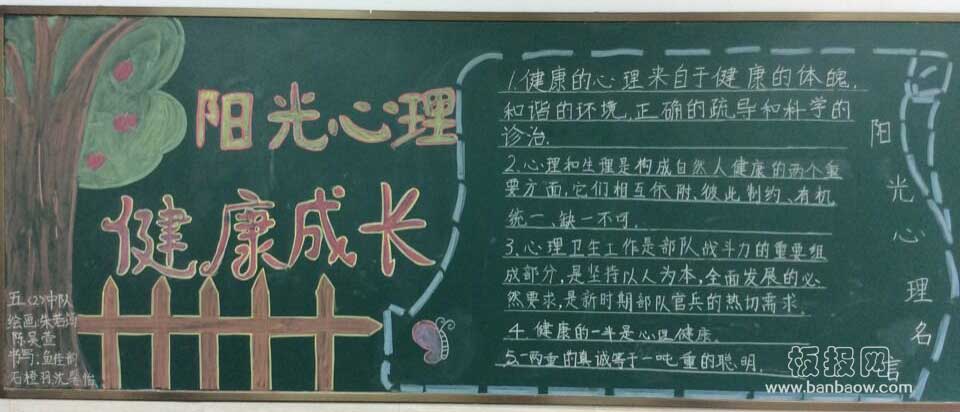 阳光心理
健康成长
1.健康的心理来自于健康的体魄,
和谐的环境,正确的疏导和科学的
诊治.
2.心理和生理是构成自然人健康的两个重
要方面,它们相互依附、彼此制约、有机
统一、缺一不可.
3.心理卫生工作是部队战斗力的重要组
成部分,是坚持以人为本,全面发展的必
然要求,是新时期部队官兵的热切需求.
4.健康的一半是心理健康.
5.一两重的真诚等于一吨重的聪明.
阳光心理名言
五〈2〉中队
绘画:朱
陈昊萱
书写:
石橙羽沈 怡
板报网
www.banbaow.com